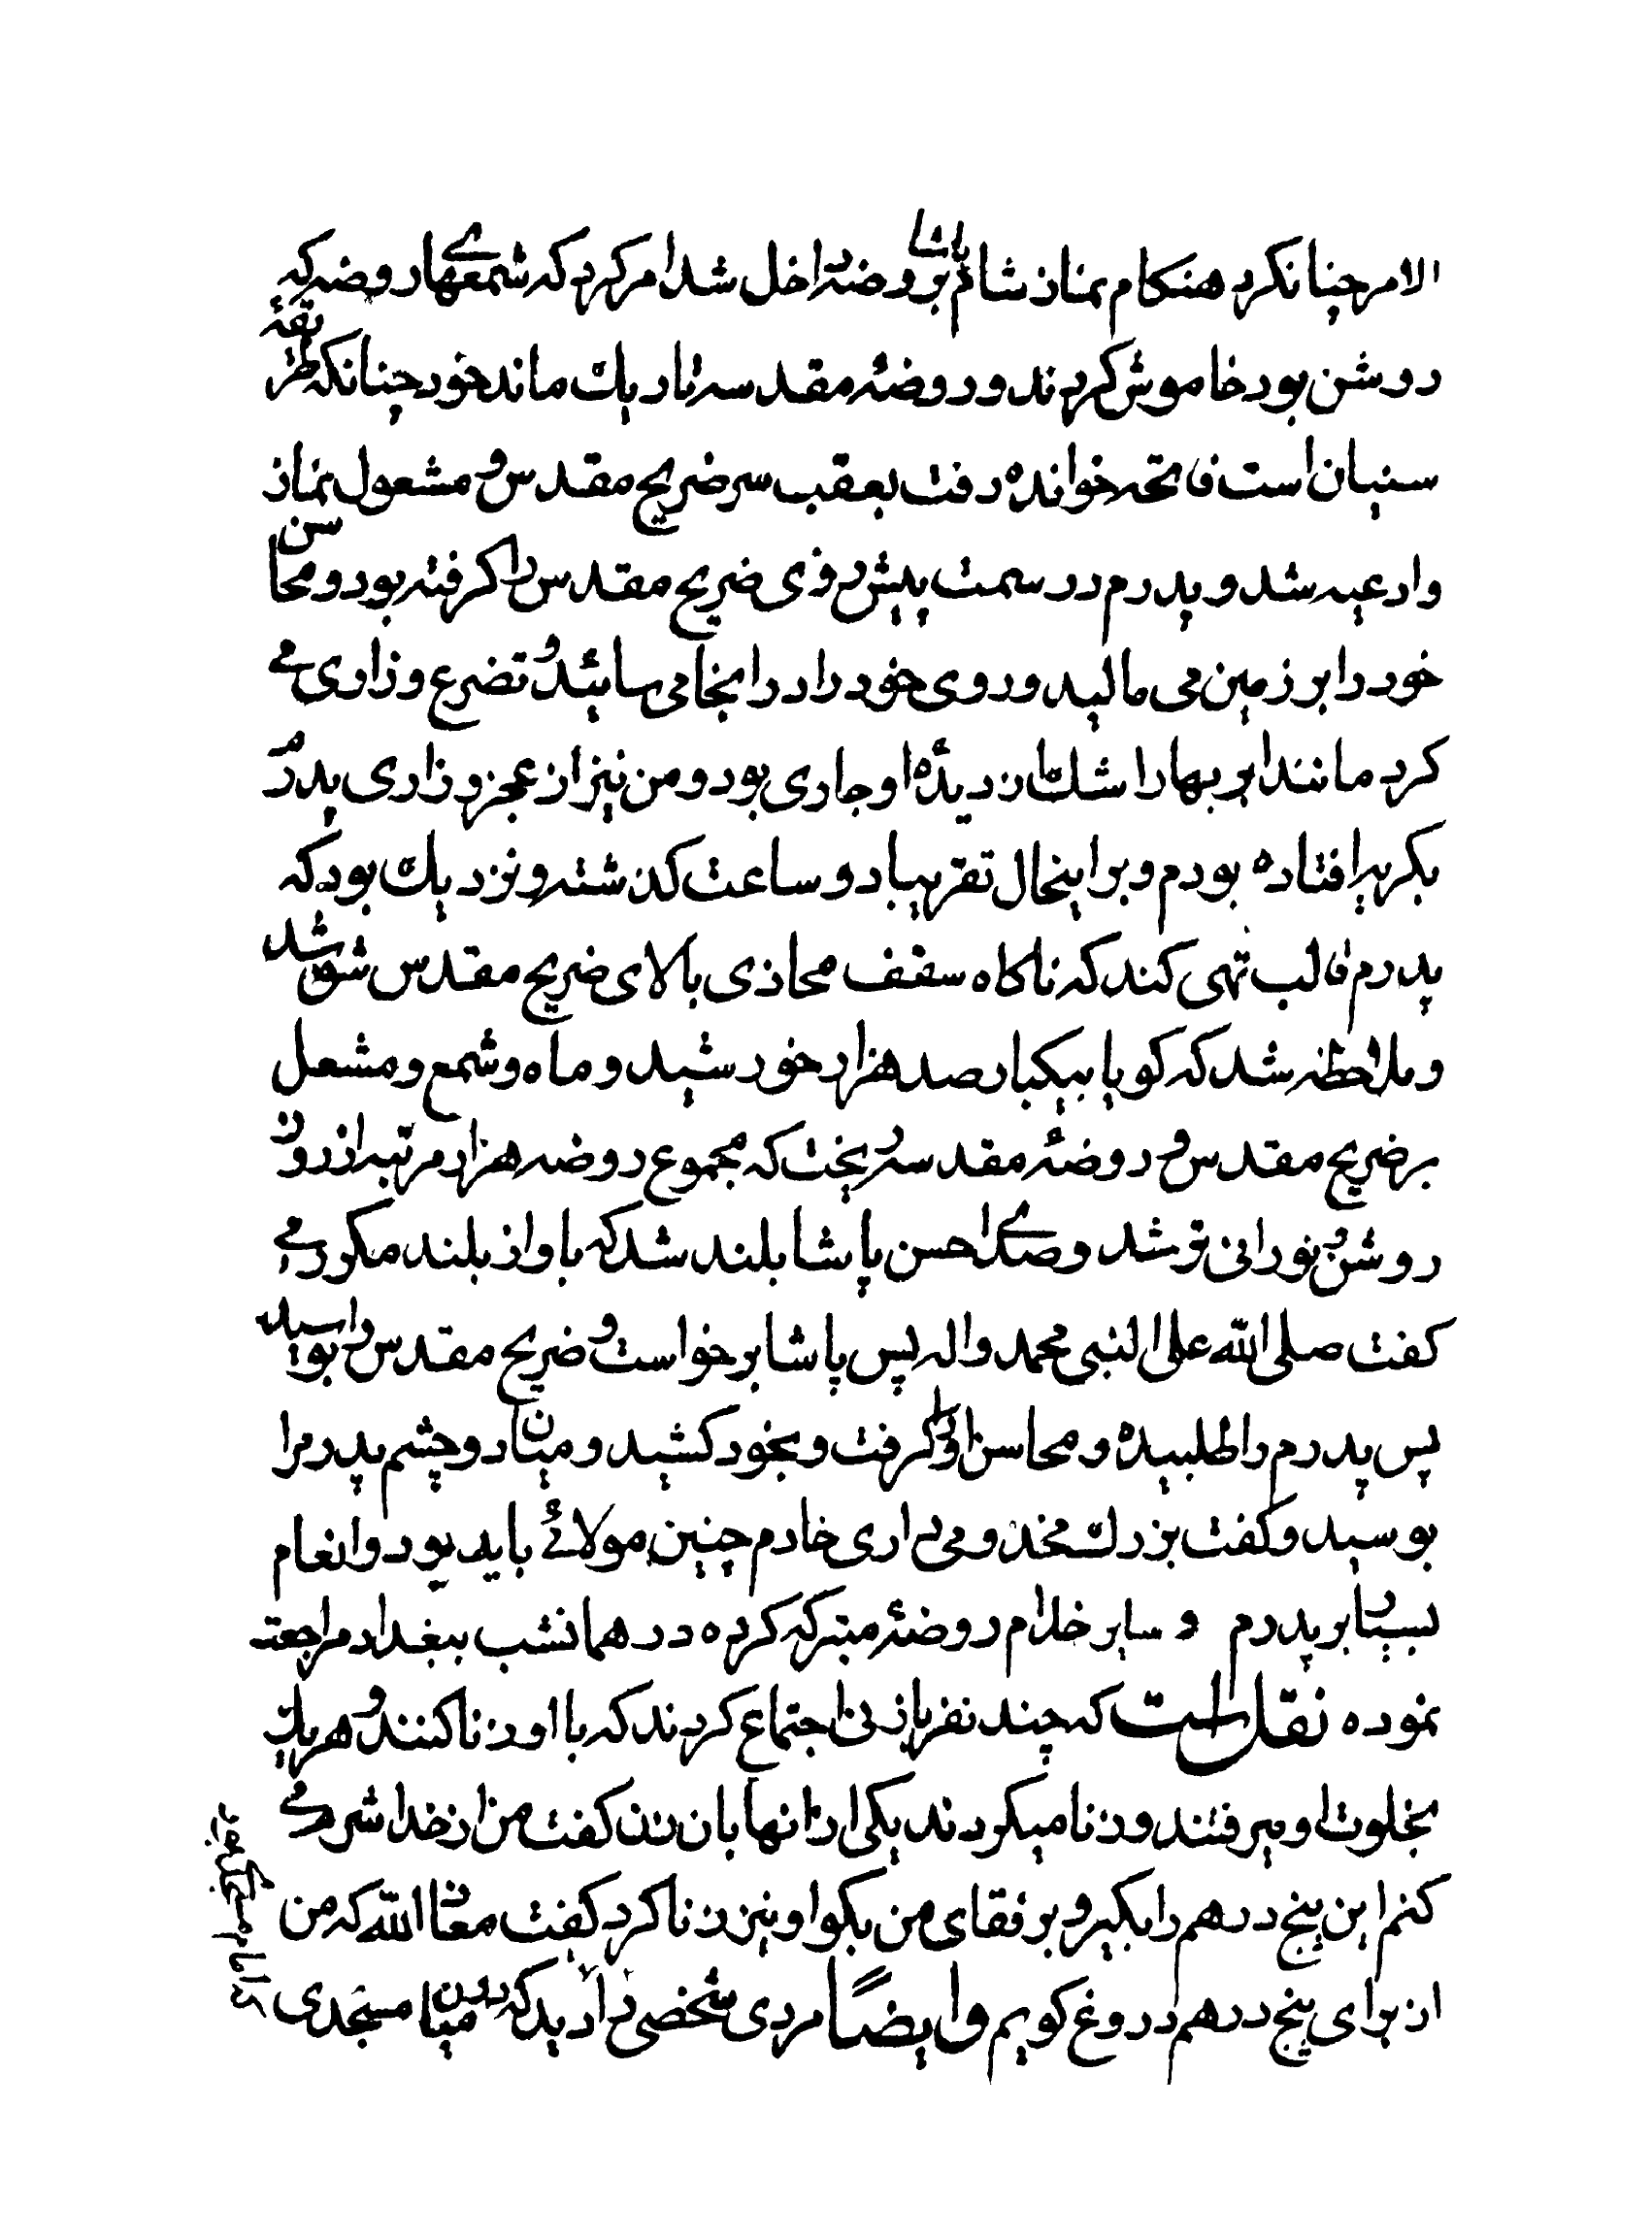 الامر چنان کرد هنکام نماز شام پاشا بروضه داخل شد امر کرد که شمعهای روضه که
روشن بود خاموش کردند و روضۀ مقدسه تاریك ماند خود چنانکه طریقۀ
سنیان است فاتحه خوانده رفت بعقب سر ضریح مقدس و مشعول نماز
وادعیه شد و پدرم در سمت پیش روی ضریح مقدس را کرفته بود و محاسن
خود را بر زمین می مالید و روی خود را در انجا می سائید و تضرع و زاری می
کرد مانند ابر بهار اشك از دیدۀ او جاری بود و من نیز از عجز و زاری پدرم
بکریه افتاده بودم و بر اینحال تقریبا دو ساعت کذشته و نزدیك بود که
پدرم قالب تهی کند که ناکاه سقف محاذی بالای ضریح مقدس شق شد
و ملاحظه شد که کویا بیکبار صد هزار خورشید و ماه و شمع و مشعل
بر ضریح مقدس و روضۀ مقدسه ریخت که مجموع روضه هزار مرتبه از روز
روشن و نورانی تر شد و صدای حسن پاشا بلند شد که باواز بلند مکرر می
کفت صلی الله علی النبی محمد واله پس پاشا برخواست و ضریح مقدس را بوسید
پس پدرم را طلبیده و محاسن او را کرفت و بخود کشید و میان دو چشم پدر مرا
بوسید و کفت بزرك مخدومی داری خادم چنین مولائی باید بود و انعام
بسیار بر پدرم و سایر خدام روضۀ متبرکه کرده در همانشب ببغداد مراجعت
نموده نقل است که چند نفر بازنی اجتماع کردند که با او زنا کنند و هر یك
بخلوت او میرفتند و زنا میکردند یکی از انها بان زن کفت من از خدا شرم می
کنم این پنج درهم را بکیر و برفقای من بکو او نیز زنا کرد کفت معاذ الله که من
از برای پنج درهم دروغ کویم وایضًا مردی شخصی را دید که در میان مسجدی